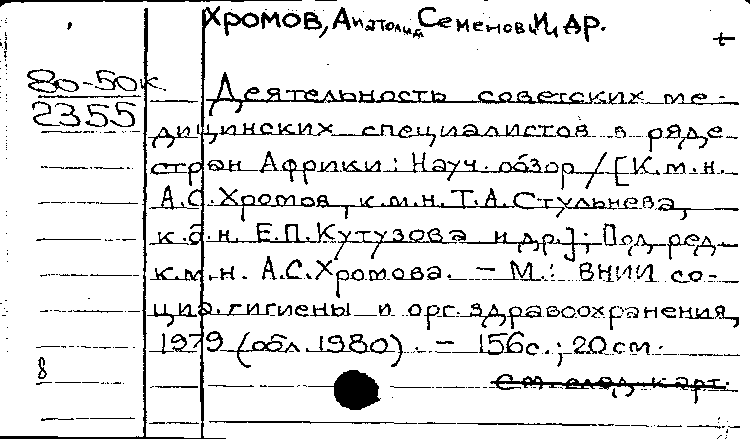 Хромов, Анатолий Семенович, и др.
80-50к
2355
Деятельность советских ме-
дицинских специалистов в ряде
стран Африки: Науч. обзор / [К.м.н.
А.С. Хромов, к.м.н. Т.А. Стульнева,
к.б.н. Е.П. Кутузова и др.]; Под ред.
к.м.н. А.С. Хромова. – М.: ВНИИ со-
циа. гигиены и орг. здравоохранения,
1979 (обл. 1980). – 156с.; 20см.
8
См. след. карт.